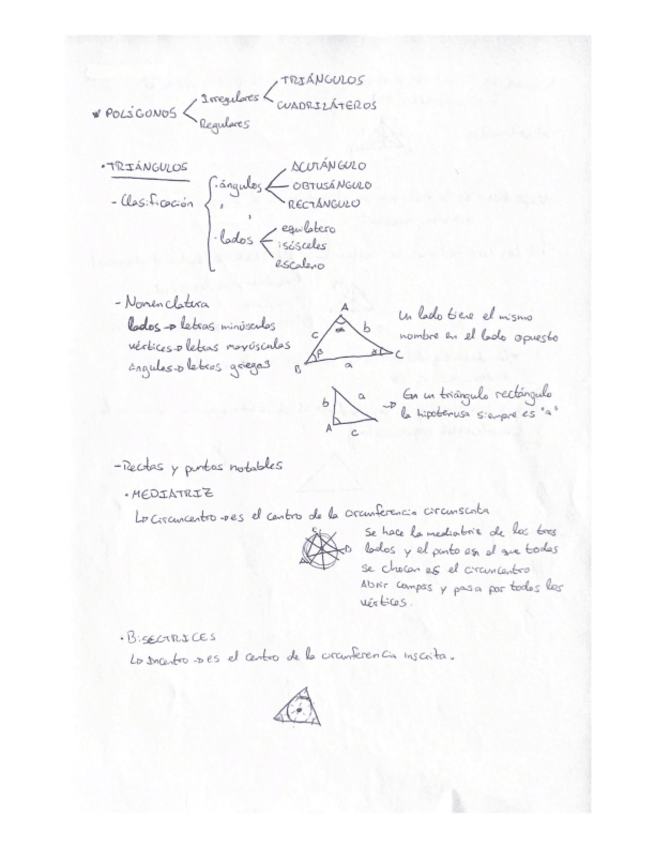 TRIÁNGULOS
Irregulares
CUADRILÁTEROS
POLÍGONOS
Regulares
• TRIÁNGULOS
ACUTÁNGULO
ángulos OBTUSÁNGULO
- Clasificación
RECTÁNGULO
equilatero
lados isósceles
escaleno
- Nomenclatura
lados → letras minúsculas
vértices → letras mayúsculas
ángulos → letras griegas
A
c b
B β C
a
Un lado tiene el mismo
nombre en el lado opuesto
b a
A c
→ En un triángulo rectángulo
la hipotenusa siempre es "a"
- Rectas y puntos notables
• MEDIATRIZ
Lo Circuncentro → es el centro de la circunferencia circunscrita
Se hace la mediatriz de los tres
lados y el punto en el que todas
se chocan es el circuncentro
Abrir compas y pasa por todos los
vértices.
• BISECTRICES
Lo Incentro → es el centro de la circunferencia inscrita.